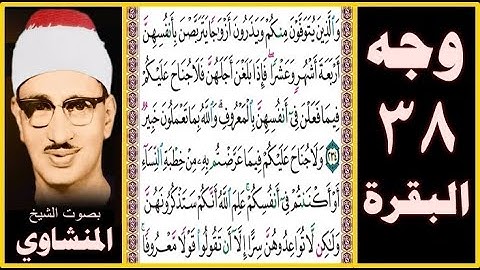 وَالَّذِينَ يُتَوَفَّوْنَ مِنكُمْ وَيَذَرُونَ أَزْوَاجًا يَتَرَبَّصْنَ بِأَنفُسِهِنَّ
أَرْبَعَةَ أَشْهُرٍ وَعَشْرًا ۖ فَإِذَا بَلَغْنَ أَجَلَهُنَّ فَلَا جُنَاحَ عَلَيْكُمْ
فِيمَا فَعَلْنَ فِي أَنفُسِهِنَّ بِالْمَعْرُوفِ ۗ وَاللَّهُ بِمَا تَعْمَلُونَ خَبِيرٌ
٢٣٤ وَلَا جُنَاحَ عَلَيْكُمْ فِيمَا عَرَّضْتُم بِهِ مِنْ خِطْبَةِ النِّسَاءِ
أَوْ أَكْنَنتُمْ فِي أَنفُسِكُمْ ۚ عَلِمَ اللَّهُ أَنَّكُمْ سَتَذْكُرُونَهُنَّ
وَلَٰكِن لَّا تُوَاعِدُوهُنَّ سِرًّا إِلَّا أَن تَقُولُوا قَوْلًا مَّعْرُوفًا
وجه
٣٨
البقرة
بصوت الشيخ
المنشاوي